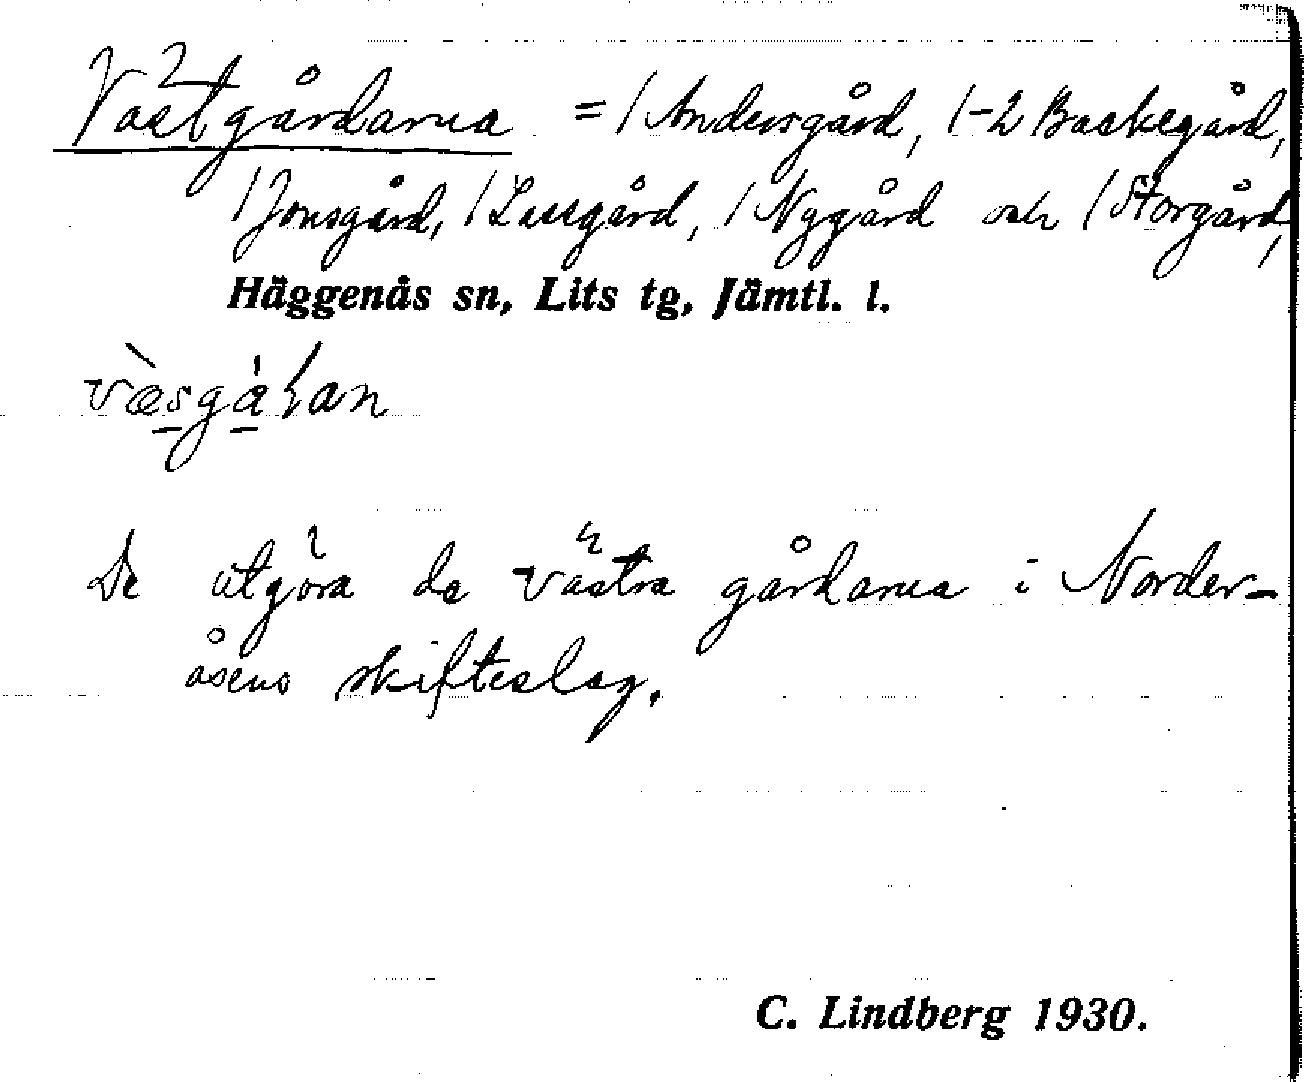 Västgårdarna = 1 Andersgård, 1-2 Backegård,
1 Jonsgård, 1 Lassgård, 1 Nygård och 1 Storgård,
Häggenås sn, Lits tg, Jämtl. l.
De utgöra de västra gårdarna i Norder-
åsens skifteslag.
C. Lindberg 1930.